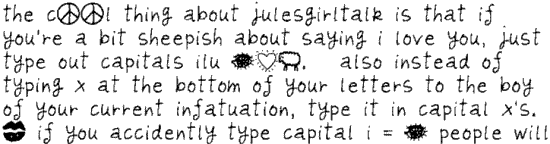 the c☮☮l thing about julesgirltalk is that if
you're a bit sheepish about saying i love you, just
type out capitals ilu 👁♡🐑. also instead of
typing x at the bottom of your letters to the boy
of your current infatuation, type it in capital x's.
💋 if you accidently type capital i = 👁 people will